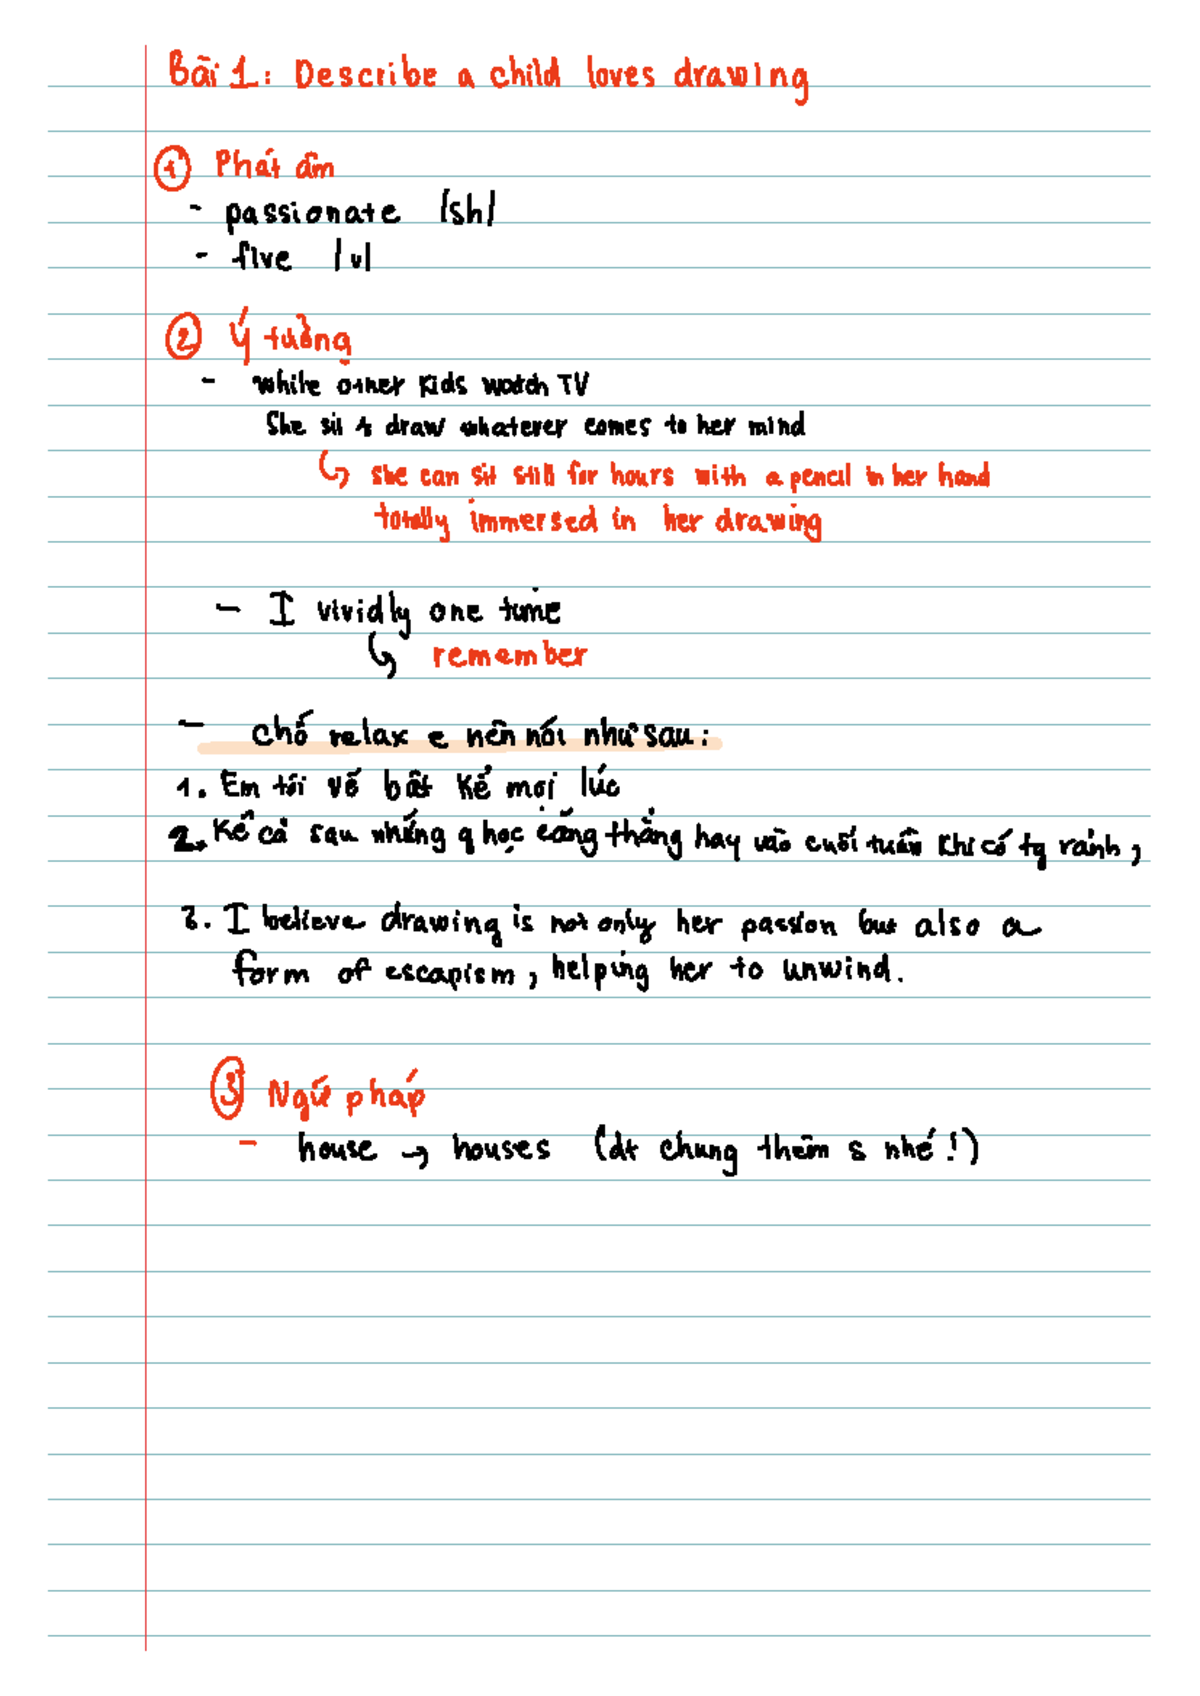 Bài 1: Describe a child loves drawing
① Phát âm
- passionate /sh/
- five /v/
② Ý tưởng
- While other kids watch TV
She sit & draw whatever comes to her mind
↳ she can sit still for hours with a pencil in her hand
totally immersed in her drawing
- I vividly one time
↳ remember
- chỗ relax e nên nói như sau:
1. Em tôi vẽ bất kể mọi lúc
2. Kể cả sau những g học căng thẳng hay vào cuối tuần khi có tg rảnh,
3. I believe drawing is not only her passion but also a
form of escapism, helping her to unwind.
③ Ngữ pháp
- house → houses (dt chung thêm s nhé!)